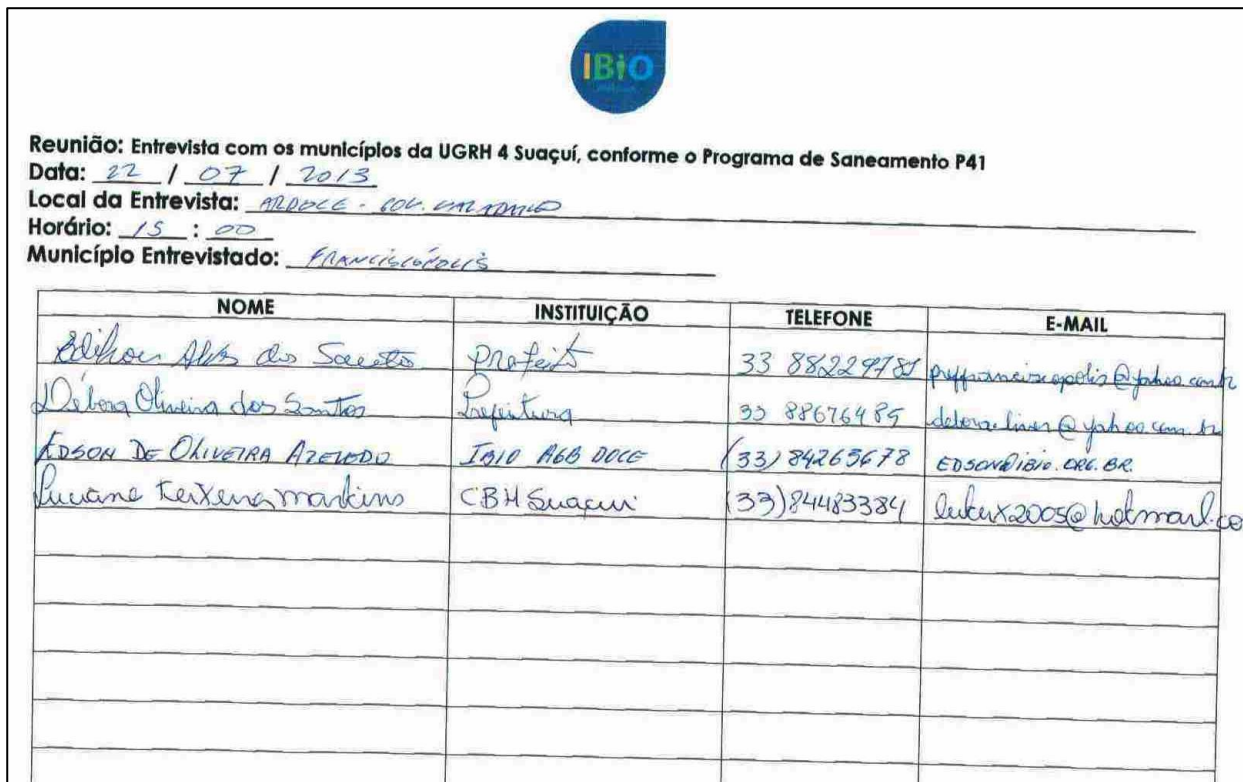 IBiO
Reunião: Entrevista com os municípios da UGRH 4 Suaçuí, conforme o Programa de Saneamento P41
Data: 22 / 07 / 2013
Local da Entrevista: ARDOCE - GOV. VALADARES
Horário: 15 : 00
Município Entrevistado: FRANCISCÓPOLIS
NOME INSTITUIÇÃO TELEFONE E-MAIL
Alves dos Santos Prefeito 33 88229781 preffranciscopolis@yahoo.com.br
Débora Oliveira dos Santos Prefeitura 33 88676485
EDSON DE OLIVEIRA AZEVEDO IBIO AGB DOCE (33) 84265678 EDSON@IBIO.ORG.BR.
Luciane Teixeira martins CBH Suaçui (33)84483384